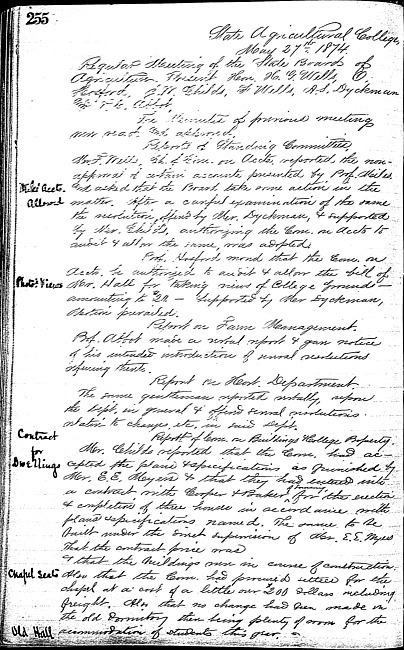 255
State Agricultural College,
May 27th 1874.
Regular Meeting of the State Board of
Agriculture. Present Hon. H. G. Wells, O.
Hosford, J. W. Childs, F. Wells, A. S. Dyckman
& T. C. Abbot,
The Minutes of previous meeting
was read and approved.
Reports of Standing Committees,
Mr. F. Wells, Ch. of Com. on Accts, reported the non-
approval of certain accounts presented by Prof. Miles
Miles Accts. Allowed
and asked that the Board take some action in the
matter. After a careful examination of the same
the resolution, offered by Mr. Dyckman, & supported
by Mr. Childs, authorizing the Com. on Accts to
audit & allow the same, was adopted.
Prof. Hosford moved that the Com. on
Accts. be authorized to audit & allow the bill of
Photo Views
Mr. Hall for taking views of College Grounds—
amounting to 20 — supported by Mr Dyckman,
Motion prevailed.
Report on Farm Management.
Prof. Abbot made a verbal report & gave notice
of his intended introduction of several resolutions
Report on Hort. Department.
The same gentleman reported verbally, upon
the Dept. in general & offered several resolutions
relative to changes, etc, in said Dept.
Report of Com. on Buildings & College Property.
Contract for Dwellings
Mr. Childs reported that the Com. had ac-
cepted the plans & specifications as furnished by
Mr. E. E. Meyers & that they had entered into
a contract with Cooper & Baker for the erection
& completion of three houses in accordance with
plans & specifications named. The same to be
built under the direct supervision of Mr. E. E. Myers
That the contract price was
& that the buildings were in course of construction.
Chapel Seats
Also that the Com. had procured settees for the
chapel at a cost of a little over 200 dollars including
freight. Also that no change had been made in
the old dormitory there being plenty of room for the
Old Hall
accommodation of students this year.